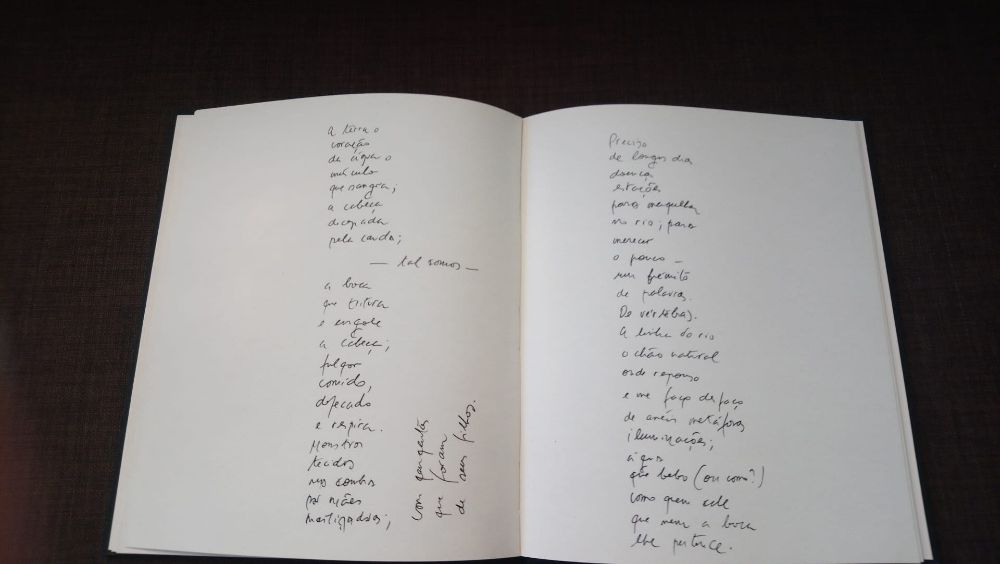 a terra o
coração
da água o
músculo
que sangra;
a cabeça
decepada
pela cauda;
— tal somos —
a boca
que tritura
e engole
a cabeça;
fulgor
comido,
defecado
e respira.
Monstros
tecidos
nos sonhos
por mães
mastigadas;
com gargantas
que foram
de seus filhos.
Preciso
de longos dias
doença
estações
para mergulhar
no rio; para
merecer
o pouco —
um frémito
de palavras.
De vértebras.
A linha do rio
o chão natural
onde repouso
e me faço desfaço
de anéis metáforas
iluminações;
água
que bebo (ou como?)
como quem sabe
que nem a boca
lhe pertence.